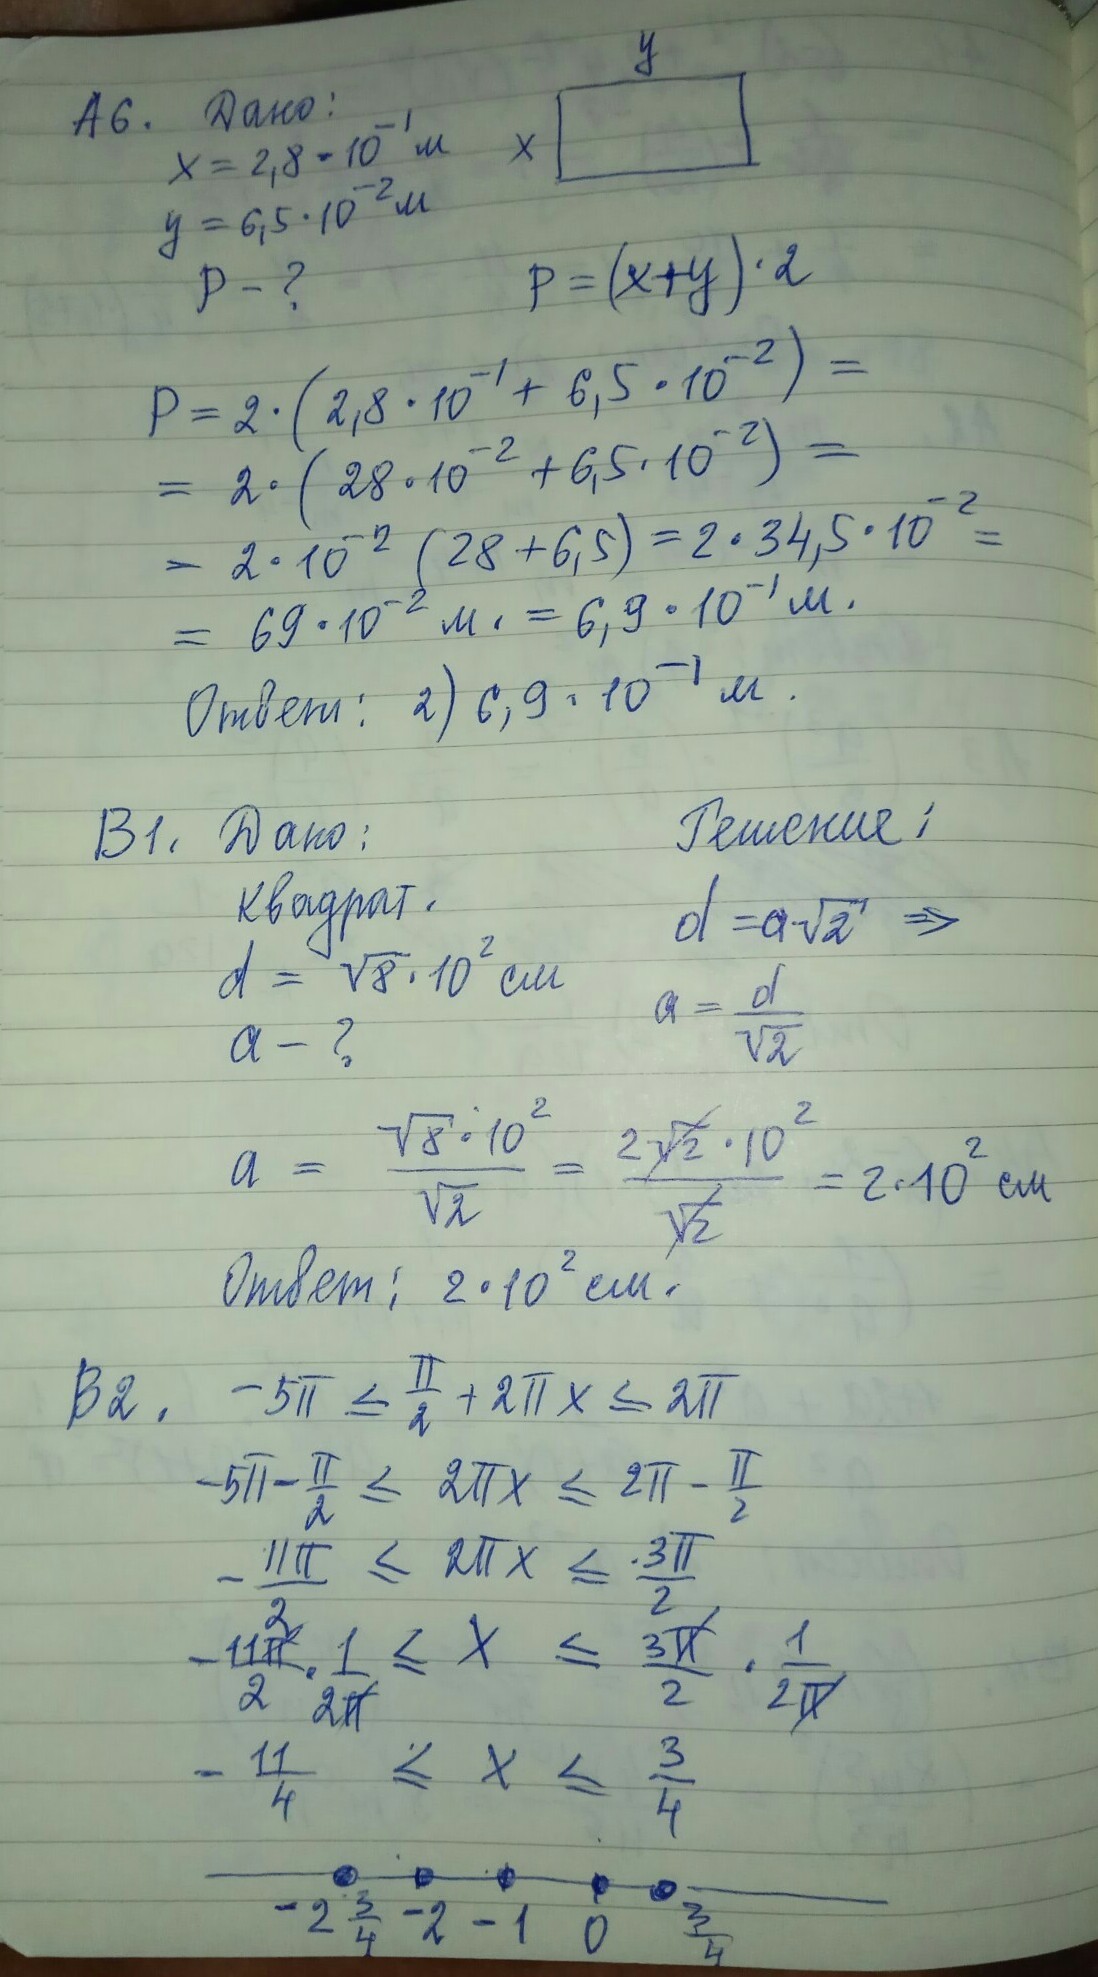 y
А6. Дано:
x = 2,8 · 10⁻¹ м
x
y = 6,5 · 10⁻² м
P – ?
P = (x+y) · 2
P = 2 · (2,8 · 10⁻¹ + 6,5 · 10⁻²) =
= 2 · (28 · 10⁻² + 6,5 · 10⁻²) =
= 2 · 10⁻² (28 + 6,5) = 2 · 34,5 · 10⁻² =
= 69 · 10⁻² м. = 6,9 · 10⁻¹ м.
Ответ: 2) 6,9 · 10⁻¹ м.
В1. Дано:
Решение:
квадрат.
d = a√2 ⇒
d = √8 · 10² см
a = d/√2
a – ?
a = (√8 · 10²)/√2 = (2√2 · 10²)/√2 = 2 · 10² см
Ответ: 2 · 10² см.
В2. -5π ≤ π/2 + 2πx ≤ 2π
-5π - π/2 ≤ 2πx ≤ 2π - π/2
- 11π/2 ≤ 2πx ≤ 3π/2
- 11π/2 · 1/2π ≤ x ≤ 3π/2 · 1/2π
- 11/4 ≤ x ≤ 3/4
-2 3/4 -2 -1 0 3/4